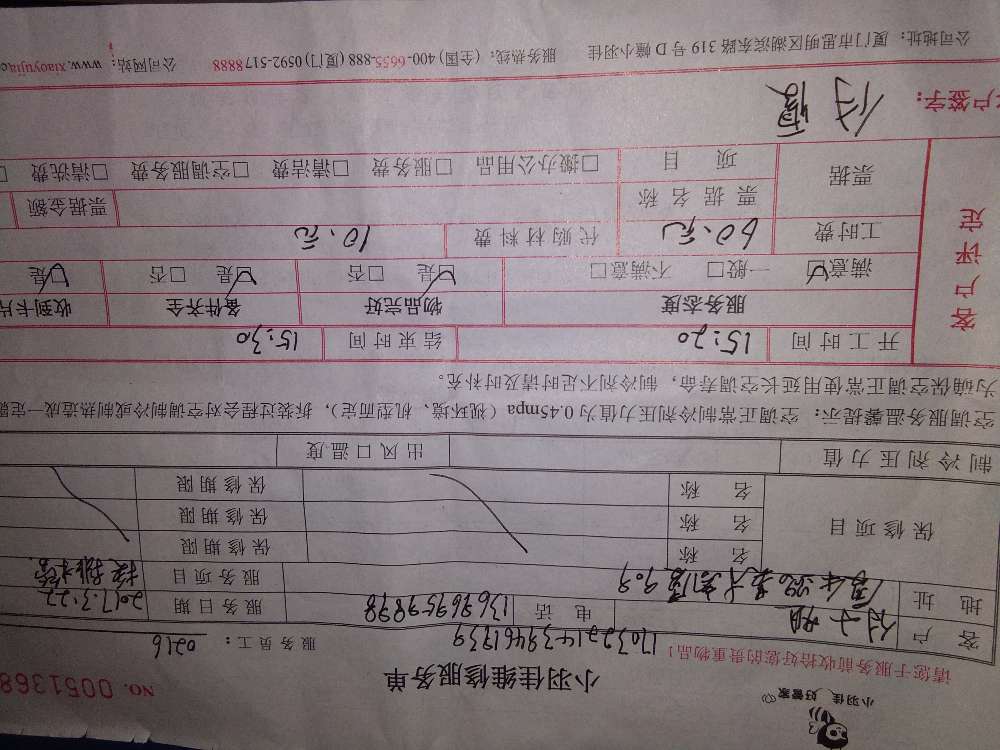 小羽佳 好管家
小羽佳维修服务单
NO. 0051368
请您于服务前收拾好您的贵重物品!
1703221439461939
服务员工: 0216
客户 电话 13696959898 服务日期 2017.3.22
地址 909 服务项目 接排水管
保修项目 名称 保修期限
名称 保修期限
名称 保修期限
制冷剂压力值 出风口温度
空调服务温馨提示: 空调正常制冷剂压力值为 0.45mpa (视环境、机型而定), 拆装过程会对空调制冷或制热造成一定
为确保空调正常使用延长空调寿命, 制冷剂不足时请及时补充。
客户评定
开工时间 15:20 结束时间 15:30
服务态度 物品完好 备件齐全 收到卡片
满意☑ 一般□ 不满意□ ☑是 □否 ☑是 □否 ☑是
工时费 60.元 代购材料费 10.元
票据 票据名称 票据金额
项目 □搬办公用品 □服务费 □清洁费 □空调服务费 □清洗费 □
户签字:
公司地址: 厦门市思明区湖滨东路 319 号 D 幢小羽佳 服务热线: (全国) 400-6655-888 (厦门) 0592-5178888 公司网站: www.xiaoyujia.c